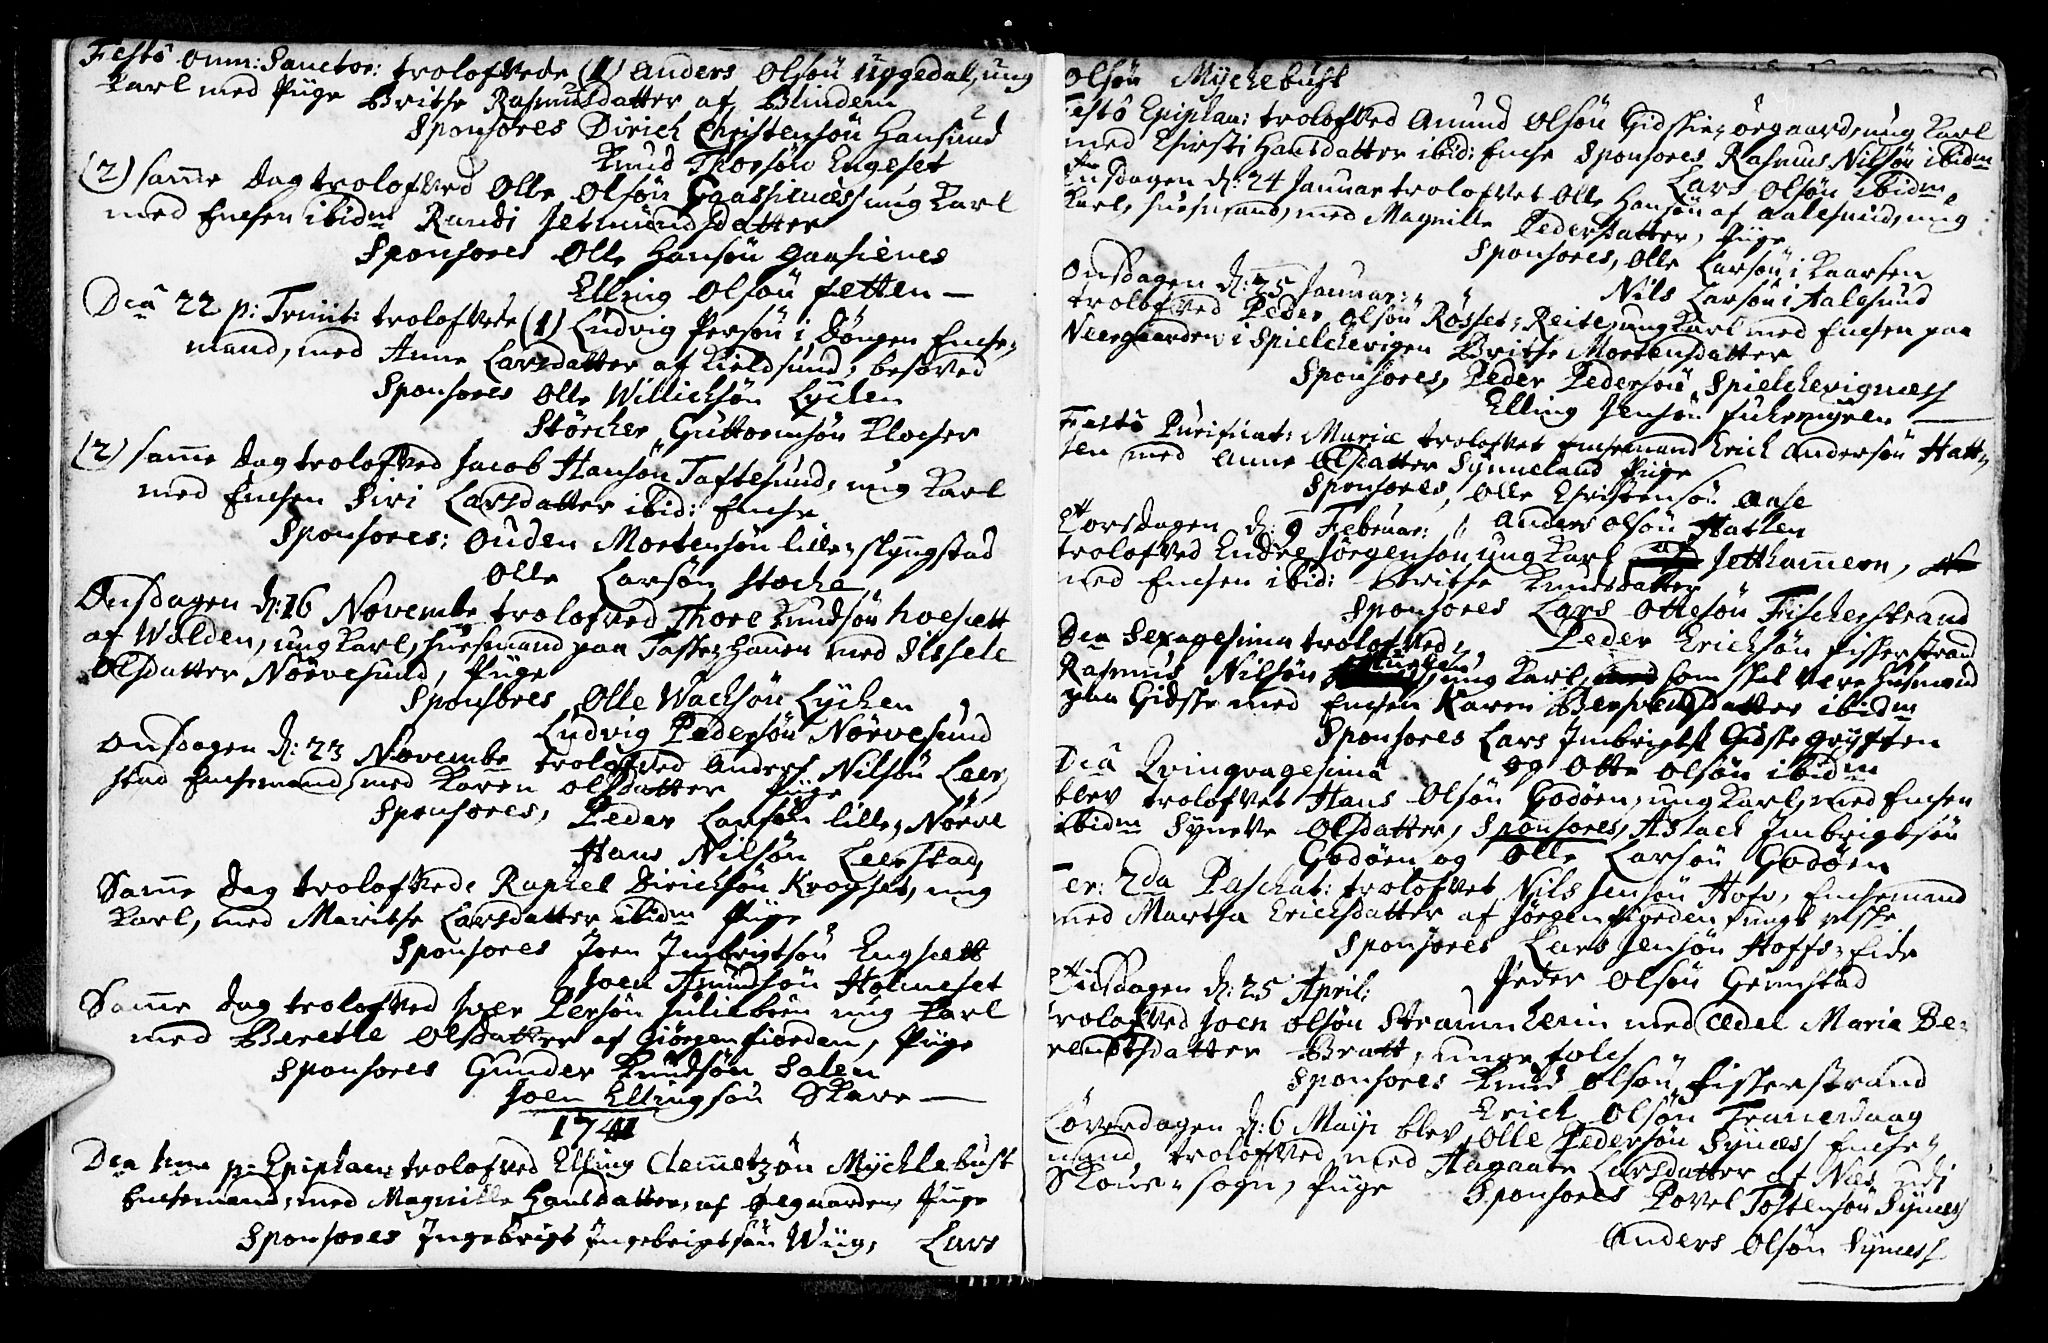 Festô Omn: Sanctor: trolofvede (1) Anders Olsøn Uggedal, ung
Karl med Piige Brithe Rasmusdatter af Blindem
Sponsores Dirich Christensøn Hansund
Knud Thorsøn Engeset
(2) samme dag trolofved Olle Olsøn Gaasenæss ung Karl
med Encken ibidm Randi Jetmundsdatter
Sponsores Olle Hansøn Gaasenes
Elling Olsøn Fetten —
Diâ 22 p: Trinit: trolofvede (1) Ludvig Persøn i Døngen Encke-
mand, med Anne Larsdatter af Kieldsund, besoved
Sponsores Olle Willichsøn Lycken
Störcher Guttormsøn Klocker
(2) samme dag trolofved Jacob Hansøn Taftesund, ung Karl
med Encken Siri Larsdatter ibid: Encke
Sponsores: Ouden Mortensøn lille-Slyngstad
Olle Larsøn Stocke
Onsdagen d: 16 Novembr trolofved Thore Knudsøn Hoesætt
af Wolden, ung Karl, huusmand paa Taskehauen med Sissele
Olsdatter Nørvesund, Piige
Sponsores Olle Wachsøn Lycken
Ludvig Pedersøn Nørvesund
Onsdagen d: 23 Novembr trolofved Anders Nilsøn Leer-
stad Enckemand, med Karen Olsdatter Piige
Sponsores, Peder Larsøn lille-Nørve
Hans Nilsøn Leerstad
Samme dag trolofvede Raphel Dirichsøn Krogset, ung
Karl, med Marithe Larsdatter ibidm Piige
Sponsores Joen Imbrigtsøn Engsætt
Joen Amundsøn Holmeset
Samme dag trolofved Iver Persøn Juliebøen ung Karl
med Berethe Olsdatter af Giørgenfiorden, Piige
Sponsores Gunder Knudsøn Solem
Joen Ellingsøn Skare —
1741
Dca p: Epiphan: trolofved Elling Clemmetzøn Mycklebust
Enckemand, med Magnille Hansdatter, af Piige
Sponsores Ingebrigt Ingebrigtsøn Wiig, Lars
Olsøn Myckebust
Festô Epiphan: trolofved Amund Olsøn Gidske-øregaard, ung Karl
med Chirsti Hansdatter ibid: Encke Sponsores Rasmus Nilsøn ibidm
Lars Olsøn ibidm
Onsdagen d: 24 Januar trolofvet Olle Hansøn af Aalesund, ung
Karl, huusmand, med Magnille Pedersdatter, Piige
Sponsores, Olle Larsøn i Kaarsen
Nils Larsøn i Aalesund
Onsdagen d: 25 Januar:
trolofved Peder Olsøn Røsset-Reite, ung Karl med Encken paa
Neergaarden i Spielchevigen Brithe Mortensdatter
Sponsores, Peder Pedersøn Spielchevignæss
Elling Jensøn Fuhremyren —
Festô Purificat: Mariæ trolofvet Enckemand Erich Andersøn Hatt-
len med Anne Olsdatter Synneland Piige
Sponsores, Olle Christensøn Aase
Anders Olsøn Hatlen
Torsdagen d: 9 Februar:
trolofved Endre Jørgensøn, ung Karl af Jetthammern,
med Encken ibid: Brithe Knudsdatter
Sponsores Lars Ottesøn Fischerstrand
Peder Erichsøn Fisserstrand
Dca Sexagesima trolofved,
Rasmus Nilsøn ung Karl, som skal være huusmand
paa Gidske med Encken Karen Berentsdatter ibidm
Sponsores Lars Imbrigts Gidskegryften
og Otte Olsøn ibidm
Dcâ Qvinqvagesima
blev trolofvet Hans Olsøn Godøen, ung Karl, med Encken
ibidm Syneve Olsdatter, Sponsores, Aslach Imbrigtsøn
Godøen og Olle Larsøn Godøen
Fer: 2da Paschat: trolofvet Nils Jensøn Hofs, Enckemand
med Martha Erichsdatter af Jørgenfiorden
Sponsores Lars Jensøn Hoffs-Eide
Peder Olsøn Grimstad
Tiisdagen d: 25 April:
trolofved Joen Olsøn Strømshenn med Cedel Marie Be-
rentsdatter Bratt, unge folch
Sponsores Knud Olsøn Fisserstrand
Erich Olsøn Tranendaag
Løverdagen d: 6 Maji blev Olle Pedersøn Synæss Encke-
mand trolofved med Aagaate Larsdatter af Næs udi
Skoue-sogn, Piige Sponsores Povel Tostensøn Synæss
Anders Olsøn Synæss